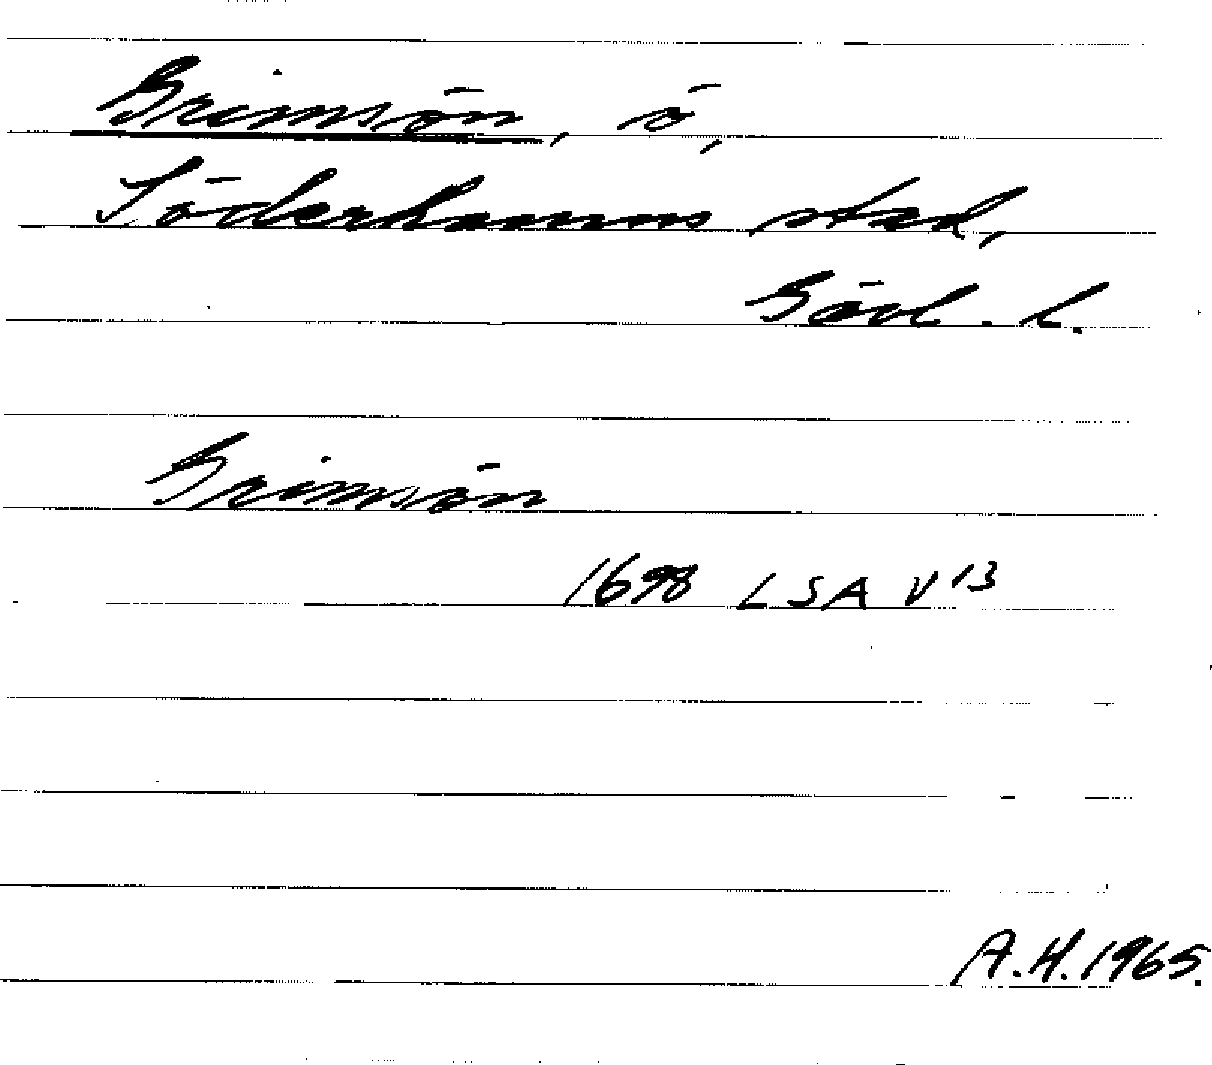 Grimsön, ö,
Söderhamns stad,
Gävl. l.
Grimsön
1698 LSA V 13
A.H. 1965.